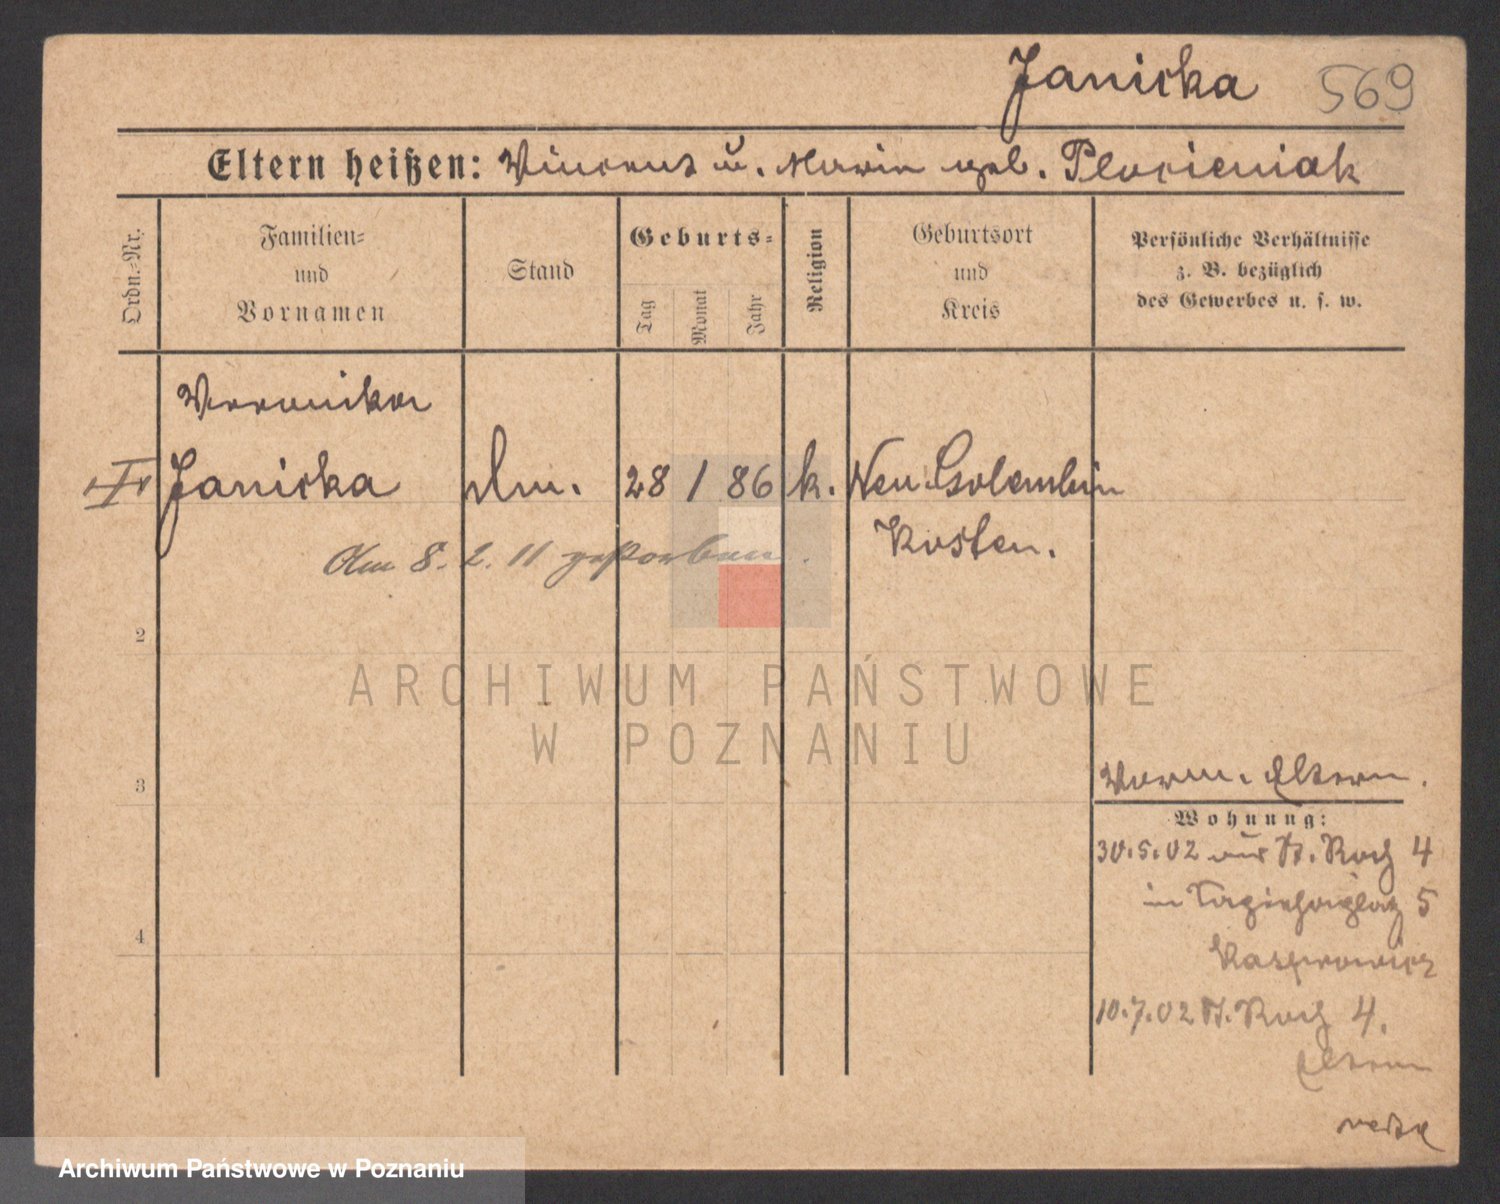 Janicka 569
Eltern heißen: Vincent u. Maria geb. Plocieniak
Ordn.-Nr.
Familien-
und
Vornamen
Stand
Geburts-
Tag
Monat
Jahr
Religion
Geburtsort
und
Kreis
Persönliche Verhältnisse
z. B. bezüglich
des Gewerbes u. s. w.
Veronika
I Janicka 28 1 86 k. Neu Golembin
Kosten.
Am 8. 2. 11 gestorben.
2
ARCHIWUM PAŃSTWOWE
W POZNANIU
3
Eltern.
Wohnung:
30.5.02 aus St. Roch 4
in 5
Kasprowicz
10.7.02 St. Roch 4.
Eltern
4
Archiwum Państwowe w Poznaniu